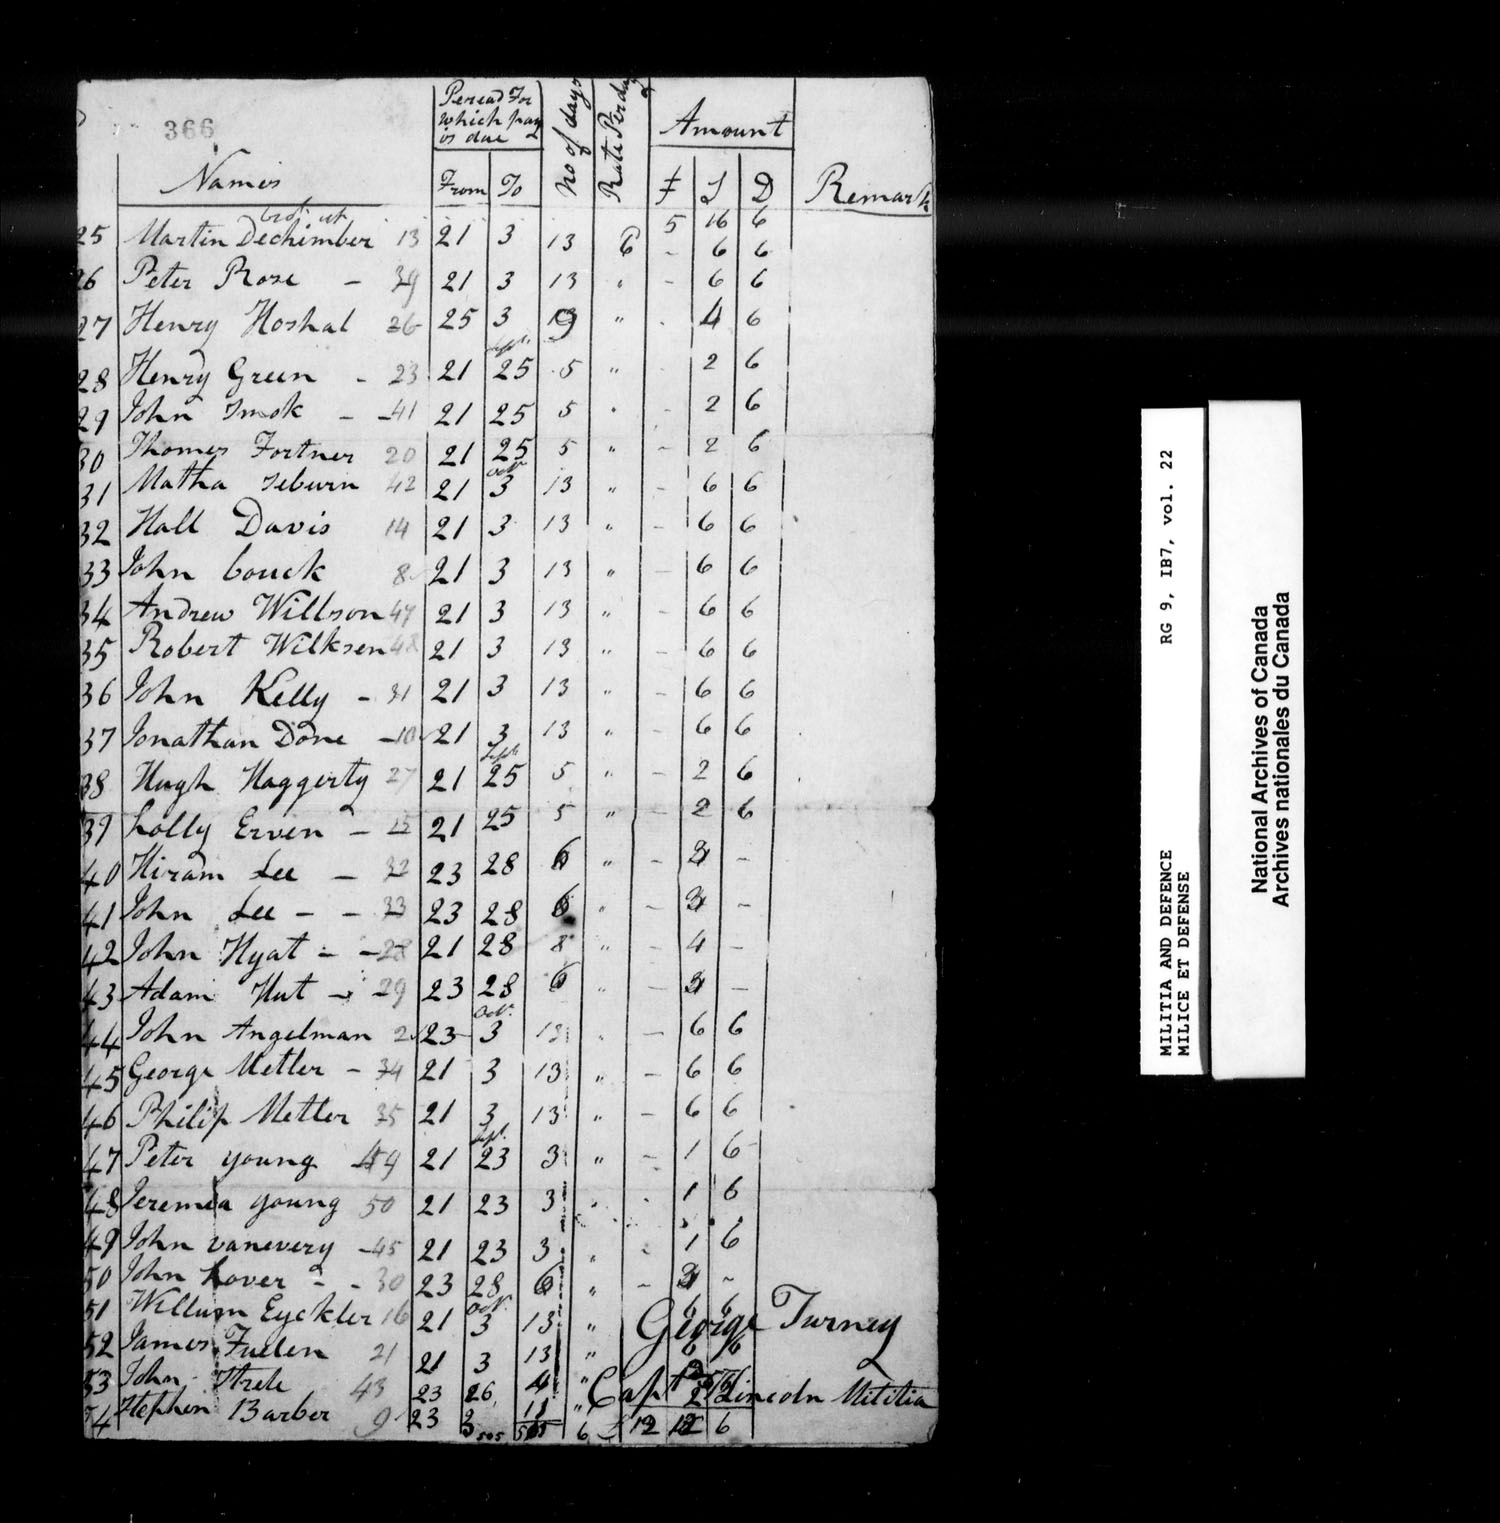 366
Names
Peread For which pay is due
From To
No of days
Rate Per day
Amount
£ S D
Remark
brot up 5 16 6
25 Martin Dechimber 13 21 3 13 6 - 6 6
26 Peter Rose - 39 21 3 13 " - 6 6
27 Henry Hoshal 26 25 3 9 " - 4 6
Sept.
28 Henry Green - 23 21 25 5 " - 2 6
29 John Smok - 41 21 25 5 " - 2 6
30 Thomas Fortner 20 21 25 5 " - 2 6
Oct.
31 Matha Seburn 42 21 3 13 " - 6 6
32 Hall Davis 14 21 3 13 " - 6 6
33 John bouck 8 21 3 13 " - 6 6
34 Andrew Willson 47 21 3 13 " - 6 6
35 Robert Wilksen 48 21 3 13 " - 6 6
36 John Kelly - 31 21 3 13 " - 6 6
37 Jonathan Done - 10 21 3 13 " - 6 6
Sept
38 Hugh Haggerty 27 21 25 5 " - 2 6
39 Lolly Erven - 15 21 25 5 " - 2 6
40 Hiram Lee - 32 23 28 6 " - 3 -
41 John Lee - - 33 23 28 6 " - 3 -
42 John Hyat - - 28 21 28 8 " - 4 -
43 Adam Hut - 29 23 28 6 " - 3 -
Oct.
44 John Angelman 2 23 3 13 " - 6 6
45 George Metler - 34 21 3 13 " - 6 6
46 Philip Metler 35 21 3 13 " - 6 6
Sept.
47 Peter young 49 21 23 3 " - 1 6
48 Jeremia young 50 21 23 3 " - 1 6
49 John vanevery - 45 21 23 3 " - 1 6
50 John Hover - - 30 23 28 6 " - 3 -
Oct.
51 Willum Eyckler 16 21 3 13 " 6 6
George Turney
52 James Fuden 21 21 3 13 " 6 6
53 John Strele 43 23 26 4 " 2
Capt 2d Lincoln Militia
54 Stephen Barber 9 23 3 11 "
505 6 £ 12 12 6
MILITIA AND DEFENCE RG 9, IB7, vol. 22
MILICE ET DEFENSE
National Archives of Canada
Archives nationales du Canada